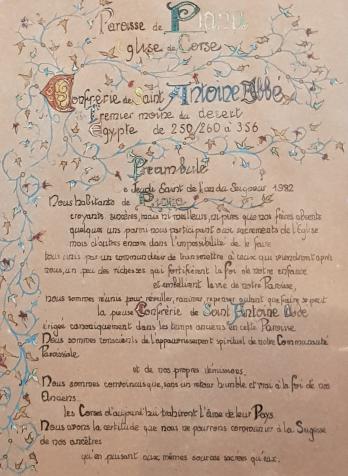 Paroisse de Piana
Eglise de Corse
Confrérie de Saint Antoine Abbé
Premier moine du désert
Egypte de 250/260 à 356
Préambule
Le Jeudi Saint de l'an du Seigneur 1982
Nous habitants de Piana
croyants, sincères, mais ni meilleurs, ni pires que nos frères absents
quelques uns parmi nous participant aux sacrements de l'Eglise
mais d'autres encore dans l'impossibilité de le faire
tous unis par un commun désir de transmettre à ceux qui viendront après
nous, un peu des richesses qui fortifièrent la foi de notre enfance
et embellirent la vie de notre Paroisse,
nous sommes réunis pour réveiller, ranimer, repenser autant que faire se peut
la pieuse Confrérie de Saint Antoine Abbé
érigée canoniquement dans les temps anciens en cette Paroisse
Nous sommes conscients de l'appauvrissement spirituel de notre Communauté
Paroissiale
et de nos propres démissions.
Nous sommes convaincus que, sans un retour humble et vrai à la foi de nos
Anciens
les Corses d'aujourd'hui trahiront l'âme de leur Pays.
Nous avons la certitude que nous ne pourrons communier à la Sagesse
de nos ancêtres
qu'en puisant aux mêmes sources sacrées qu'eux.